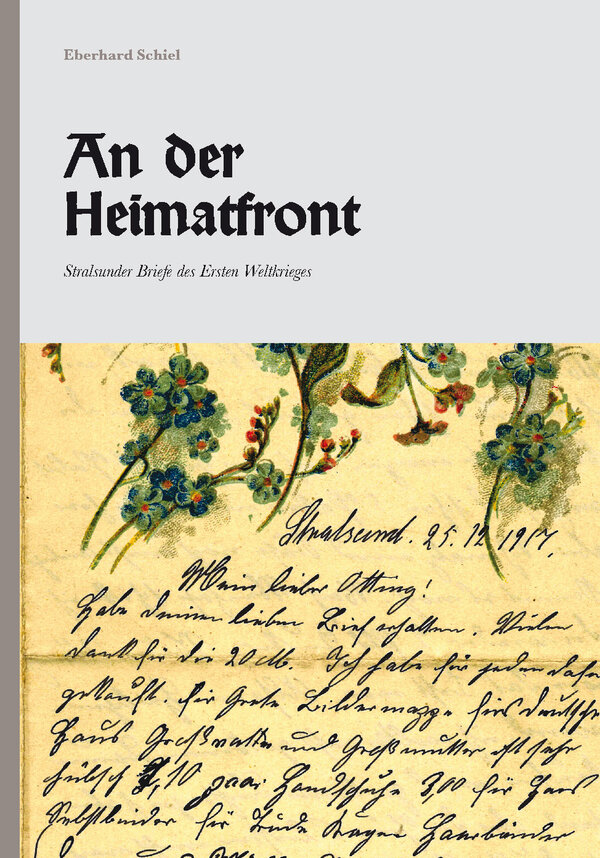 Eberhard Schiel
An der
Heimatfront
Stralsunder Briefe des Ersten Weltkrieges
Stralsund. 25.12 1917.
Mein lieber Otting!
Habe deinen lieben Brief erhalten. Vielen
dank für die 20 M. Ich habe für jeden
gekauft. für Grete Bildermappe fürs deutsche
Haus Großvater und Großmutter oft sehr
hübsch 10 paar Handschuhe 3,00 für Hans
Selbstbinder für Trude Haarbänder